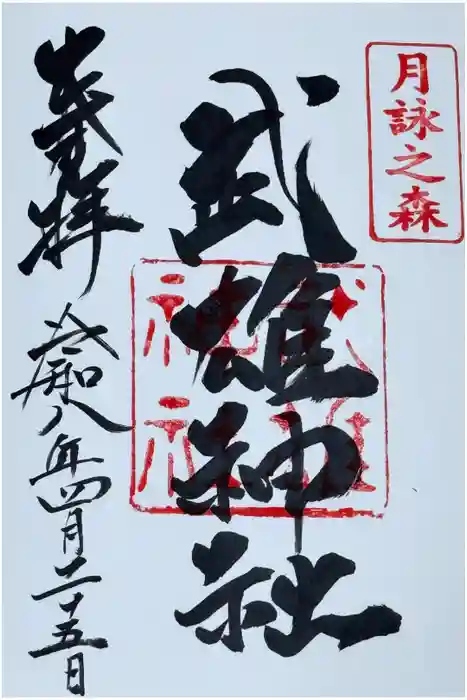 月詠之森
武雄神社
武雄
神社
奉拝 令和八年四月二十五日